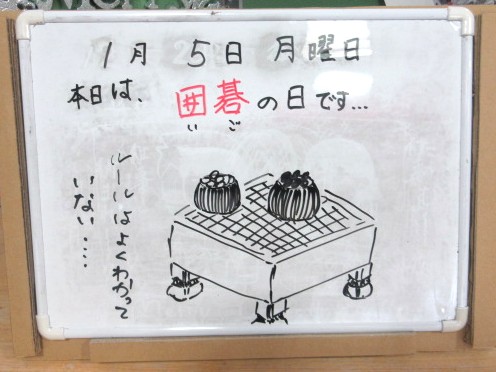 1月 5日 月曜日
本日は、囲碁の日です...
いご
ルールはよくわかって
いない....